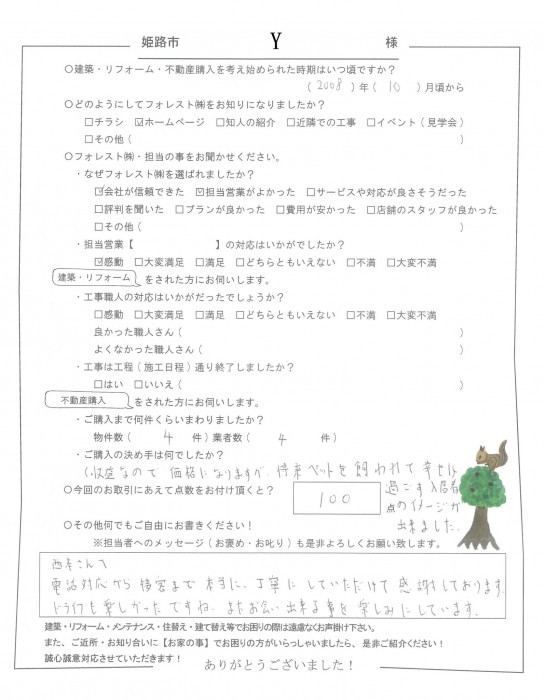 姫路市 Y 様
○建築・リフォーム・不動産購入を考え始められた時期はいつ頃ですか？
（2008）年（10）月頃から
○どのようにしてフォレスト㈱をお知りになりましたか？
□チラシ ☑ホームページ □知人の紹介 □近隣での工事 □イベント（見学会）
□その他（ ）
○フォレスト㈱・担当の事をお聞かせください。
・なぜフォレスト㈱を選ばれましたか？
☑会社が信頼できた ☑担当営業がよかった □サービスや対応が良さそうだった
□評判を聞いた □プランが良かった □費用が安かった □店舗のスタッフが良かった
□その他（ ）
・担当営業【 】の対応はいかがでしたか？
☑感動 □大変満足 □満足 □どちらともいえない □不満 □大変不満
建築・リフォーム をされた方にお伺いします。
・工事職人の対応はいかがだったでしょうか？
□感動 □大変満足 □満足 □どちらともいえない □不満 □大変不満
良かった職人さん（ ）
よくなかった職人さん（ ）
・工事は工程（施工日程）通り終了しましたか？
□はい □いいえ（ ）
不動産購入 をされた方にお伺いします。
・ご購入まで何件くらいまわりましたか？
物件数（ 4 件）業者数（ 4 件）
・ご購入の決め手は何でしたか？
（収益なので価格になりますが、将来ペットを飼われて幸せに
過ごす入居者
のイメージが
出来ました。
○今回のお取引にあえて点数をお付け頂くと？ 100 点
○その他何でもご自由にお書きください！
※担当者へのメッセージ（お褒め・お叱り）も是非よろしくお願い致します。
西本さんへ
電話対応から接客まで本当に、丁寧にしていただけて感謝しております。
ドライブも楽しかったですね。またお会い出来る事を楽しみにしています。
建築・リフォーム・メンテナンス・住替え・建て替え等でお困りの際は遠慮なくお声掛け下さい。
また、ご近所・お知り合いに【お家の事】でお困りの方がいらっしゃいましたら、是非ご紹介ください！
誠心誠意対応させていただきます！
ありがとうございました！